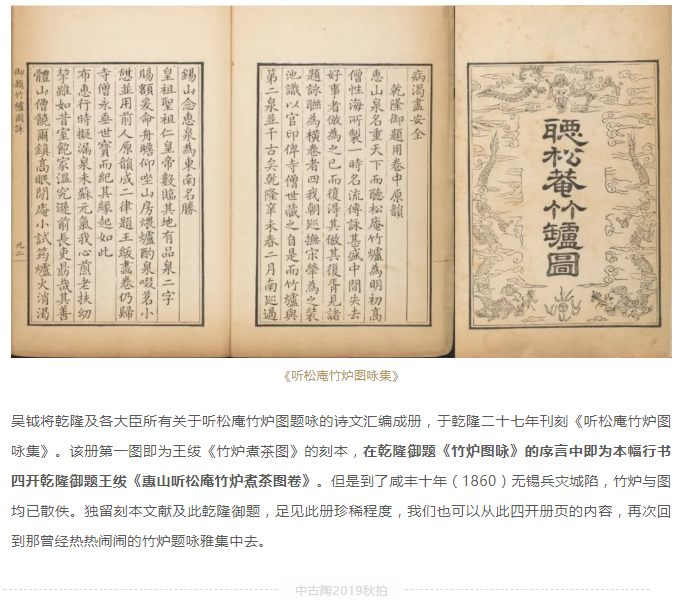 聽松菴竹罏圖
病渴盡安全
乾隆御題用卷中原韻
惠山泉名重天下而聽松庵竹爐為明初高
僧性海所製一時名流傳詠甚盛中間失去
好事者倣為之已而復得其倣其復胥見諸
題詠聯為橫卷者四我朝巡撫宋犖為之裝
池識以官印俾寺僧世藏之自是而竹爐與
第二泉並千古矣乾隆辛未春二月南巡過
錫山念惠泉為東南名勝
皇祖聖祖仁皇帝數臨其地有品泉二字
賜額爰命舟瞻仰坐山房煨爐酌泉啜茗小
憇並用前人原韻成二律題王紱畫卷仍歸
寺僧永垂世寶而紀其緣起如此
布惠行時擬漏泉未蘇元氣我心煎老扶幼
挈雖如昔室飽家溫究遜前長吏勗哉其善
體山僧饒爾鎮高眠閉庵小試筠爐火消渴
御題竹爐圖詠
《听松庵竹炉图咏集》
吴钺将乾隆及各大臣所有关于听松庵竹炉图题咏的诗文汇编成册，于乾隆二十七年刊刻《听松庵竹炉图
咏集》。该册第一图即为王绂《竹炉煮茶图》的刻本，在乾隆御题《竹炉图咏》的序言中即为本幅行书
四开乾隆御题王绂《惠山听松庵竹炉煮茶图卷》。但是到了咸丰十年（1860）无锡兵灾城陷，竹炉与图
均已散佚。独留刻本文献及此乾隆御题，足见此册珍稀程度，我们也可以从此四开册页的内容，再次回
到那曾经热热闹闹的竹炉题咏雅集中去。
中古陶2019秋拍